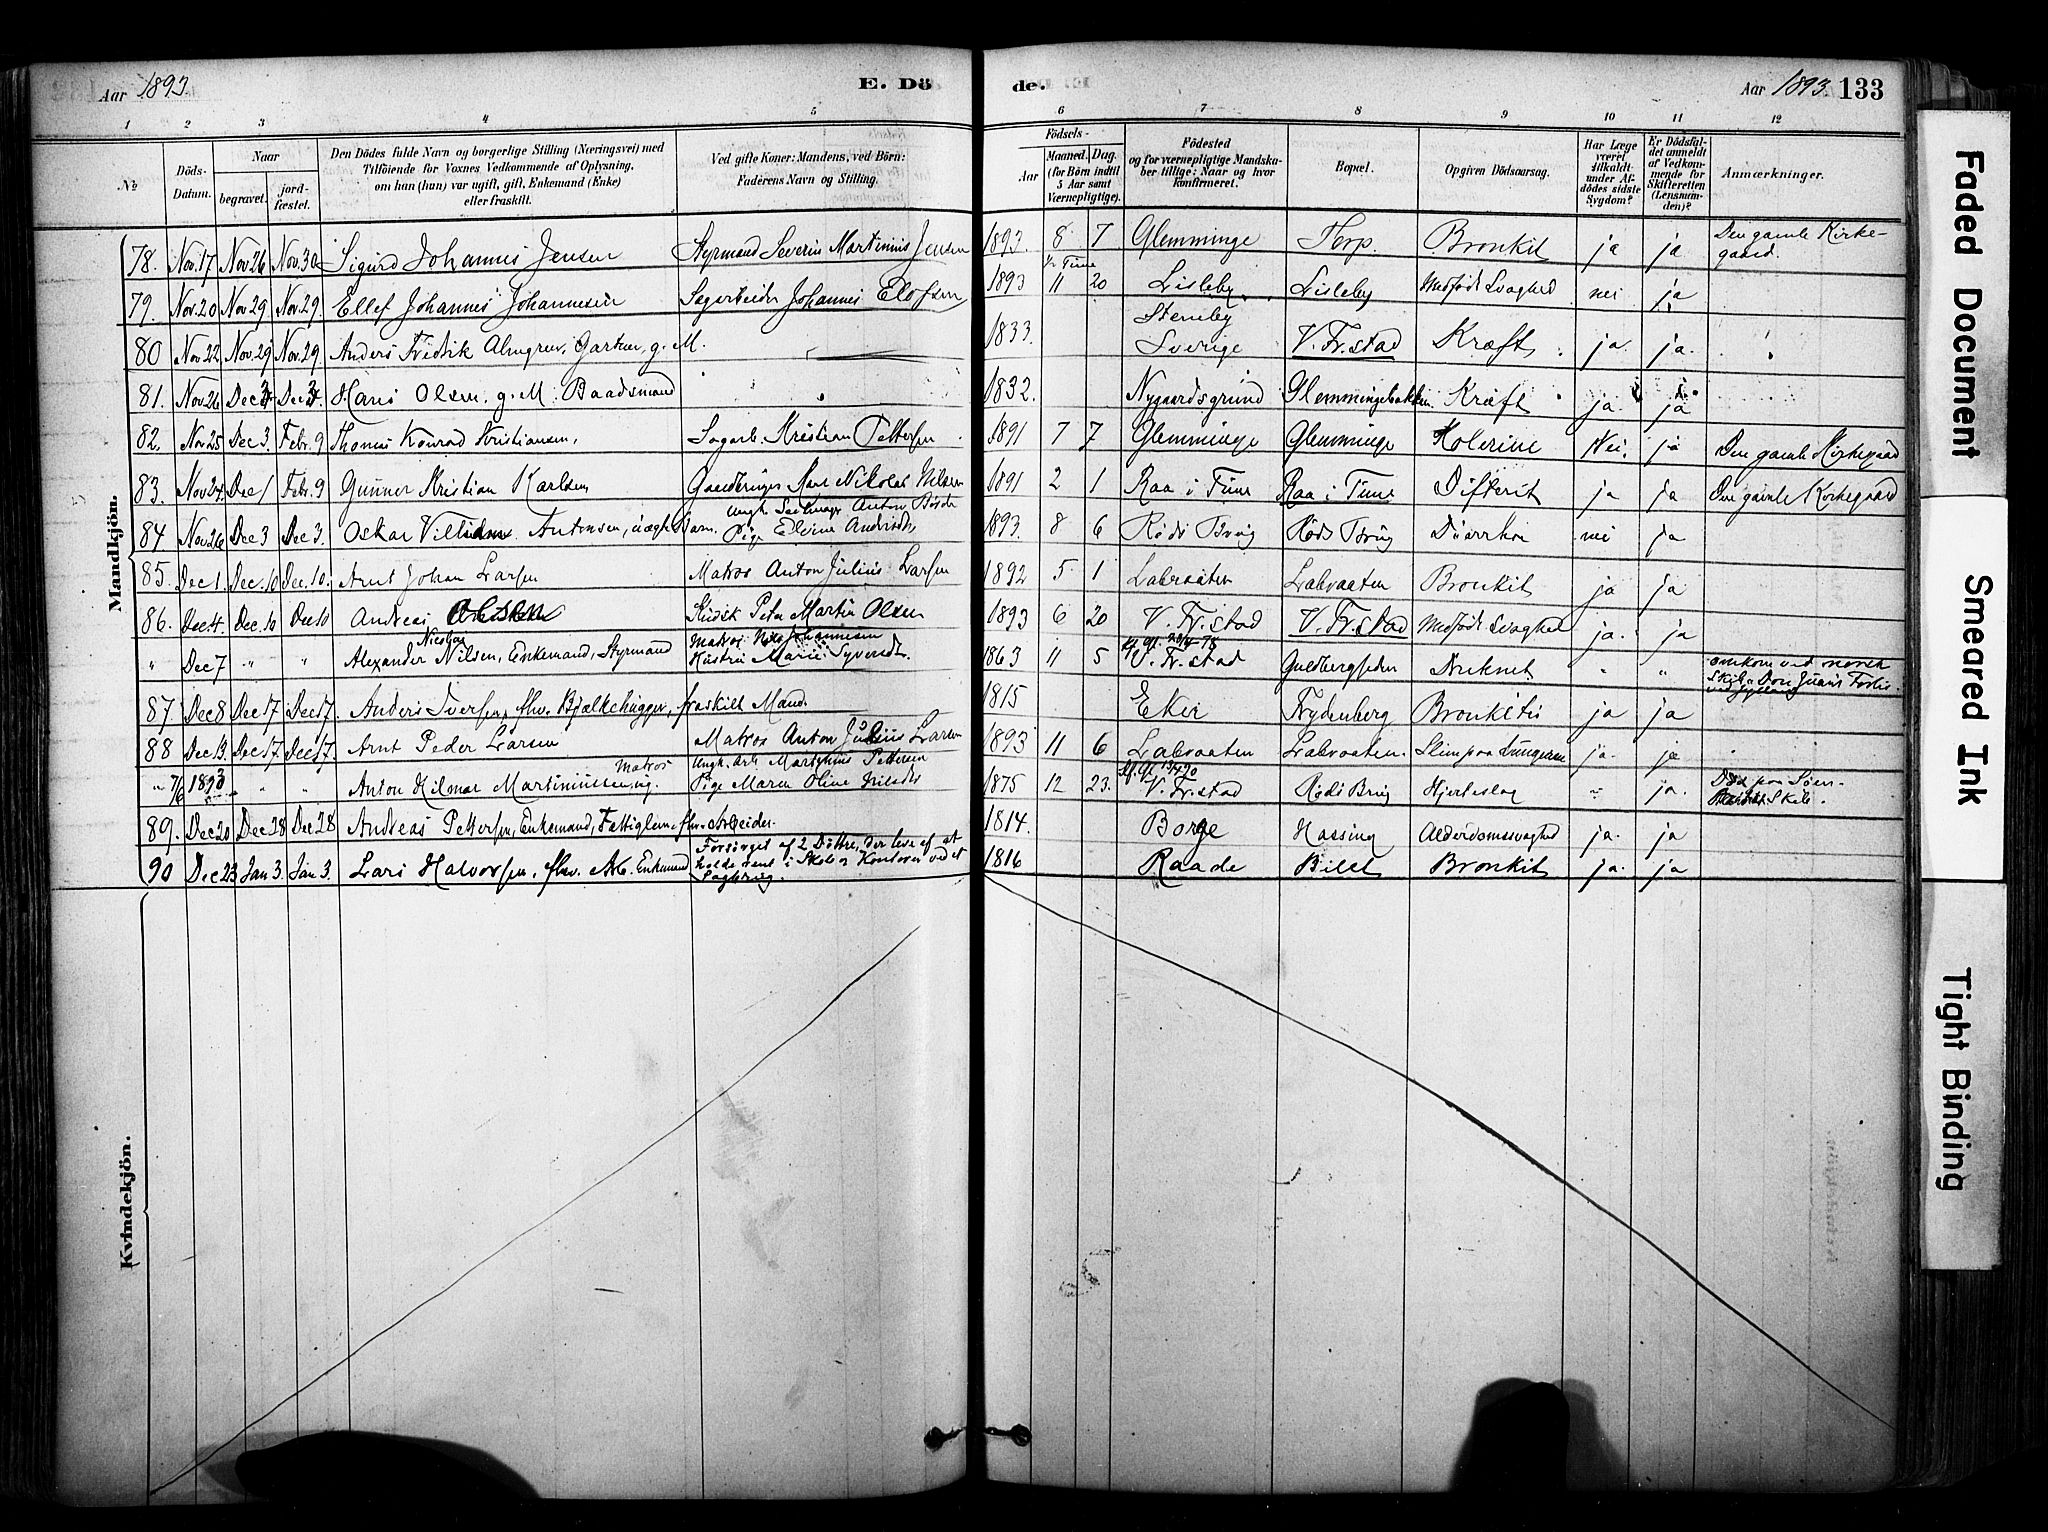 Aar 1893. E. Dö
de. Aar 1893. 133
1 2 3 4 5 6 7 8 9 10 11 12
№
Döds-Datum.
Naar
begravet.
jord-fæstet.
Den Dödes fulde Navn og borgerlige Stilling (Næringsvei) med
Tilföiende for Voxnes Vedkommende af Oplysning,
om han (hun) var ugift, gift, Enkemand (Enke)
eller fraskilt.
Ved gifte Koner: Mandens, ved Börn:
Faderens Navn og Stilling.
Födsels-
Aar
Maaned. Dag.
(for Börn indtil
5 Aar samt
Værnepligtige).
Födested
og for værnepligtige Mandska-
ber tillige: Naar og hvor
konfirmeret.
Bopæl.
Opgiven Dödsaarsag.
Har Læge
været
tilkaldt
under Af-
dödes sidste
Sygdom?
Er Dödsfal-
det anmeldt
af Vedkom-
mende for
Skifteretten
(Lensman-
den)?
Anmærkninger.
Mandkjön.
78. Nov. 17 Nov 26 Nov. 30 Sigurd Johannes Jensen Styrmand Severin Martinius Jensen 1893. 8 7 Glemminge Torp. Bronkit ja ja Den gamle Kirke-
gaard.
79. Nov. 20 Nov 29 Nov. 29 Ellef Johannes Johannesen Sagarbeider Johannes Elofsen 1893 11 20 Lisleby Lisleby Medfödt Svaghed nei ja
80 Nov 22 Nov. 29 Nov. 29 Anders Fredrik Almgren, Gartner, g. M. 1833. Steneby
Sverige V. Fr. stad Kræft ja. ja.
81. Nov 26 Dec 3 Dec 3. Hans Olsen. g. M. Baadsmand 1832. Nygaardsgrund Glemmingebakken Kræft ja ja
82. Nov 25 Dec 3 Febr. 9 Thomas Konrad Kristiansen, Sagarb. Kristian Pettersen 1891 7 7 Glemminge Glemminge Kolerine Nei. ja Den gamle Kirkegaard
83. Nov 24. Dec 1 Febr. 9 Gunner Kristian Karlsen Nikolai Nilsen 1891 2 1 Raa i Tune Raa i Tune Difterit ja ja Den gamle Kirkegaard
84 Nov 26 Dec 3 Dec 3. Oskar Villiam Antonsen, uægte Barn. Ungk. Anton
Pige Elvine 1893. 8 6 Röds Brug Röds Brug Diarrhoe nei ja
85. Dec 1. Dec. 10 Dec. 10. Arnt Johan Larsen Matros Anton Julius Larsen 1892 5 1 Labraaten Labraaten Bronkit ja ja
86. Dec. 4 Dec. 10 Dec 10 Andreas Olsen Kudsk Peter Martin Olsen 1893 6 20 V. Fr. stad V. Fr. stad Medfödt Svaghed ja. ja
" Dec 7 " " Alexander Nicolay Nilsen, Enkemand, Styrmand Matros Nils Johannesen
Hustru Marie 1863 11 5 V. Fr. stad Druknet " " omkom ved norsk
Skib "Don Juan's Forlis
87 Dec 8 Dec 17 Dec 17. Anders Iversen, fhv. Bjælkehugger, fraskilt Mand. 1815 Eker Frydenberg Bronkitis ja ja
88 Dec 13 Dec. 17. Dec 17. Arnt Peder Larsen Matros Anton Julius Larsen 1893 11 6 Labraaten Labraaten. Slim paa Lungerne ja. ja
" 7/6 1893 " " Anton Hilmar Martiniussen, ug. Matros Ungk. Arb. Pettersen
Pige Maren Oline 1875 12 23. V. Fr. stad Röds Brug Hjerteslag " ja. Död paa
Skib.
89. Dec 20 Dec 28 Dec 28 Andreas Pettersen, Enkemand, Fattiglem, fhv. Arbeider. 1814. Borge Hassing Alderdomssvaghed ja. ja
90 Dec 23 Jan 3. Jan 3. Lars Halvorsen, fhv. Arb. Enkemand Forsörget af 2 Döttre, der leve af at
holde rent i Skole & Kontorer ved et
Sagbrug. 1816 Raade Bilet Bronkit ja. ja
Kvindekjön.
Faded Document
Smeared Ink
Tight Binding